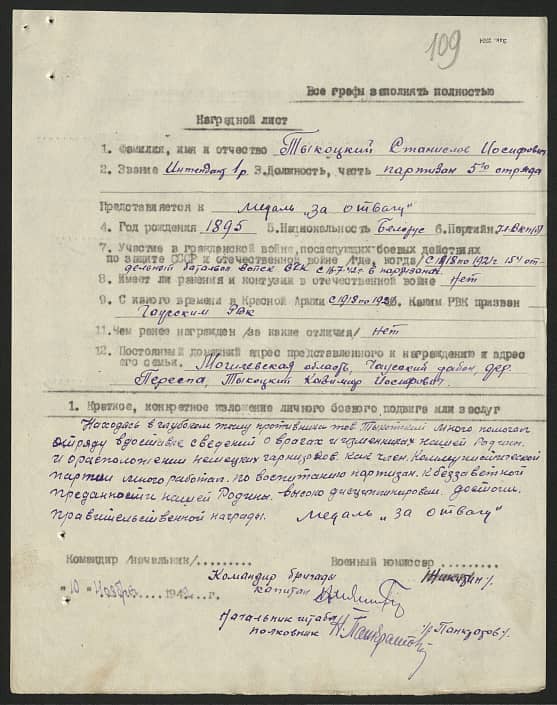 109
Все графы заполнять полностью
Наградной лист
1. Фамилия, имя и отчество Тыкоцкий Станислав Иосифович
2. Звание Интендант 1р. 3. Должность, часть партизан 5го отряда
Представляется к медаль „за отвагу"
4. Год рождения 1895 5. Национальность Белорус 6. Партийн
7. Участие в гражданской войне, последующих боевых действиях
по защите СССР и отечественной войне /где, когда/ с 1918 по 1921г 154 от-
дельной батальон войск ВЧК с в партизанах
8. Имеет ли ранения и контузии в отечественной войне нет
9. С какого времени в Красной Армии с 1918 по Каким РВК призван
Чаусским РВК
11. Чем ранее награжден /за какие отличия/ нет
12. Постоянный домашний адрес представленного к награждению и адрес
его семьи. Могилевская область, Чаусский район дер.
Тыкоцкий Казимир Иосифович.
1. Краткое, конкретное изложение личного боевого подвига или заслуг
Находясь в глубоком тылу противника тов. Тыкоцкий много помогал
отряду в доставке сведений о врагах и изменниках нашей Родины.
и о расположении немецких гарнизонов как член. Коммунистической
партии много работал. по воспитанию партизан. к беззаветной
преданности нашей Родины. высоко дисциплинирован. достоин.
правительственной награды. Медаль „за отвагу"
Командир /начальник/......... Военный комиссар.........
Командир бригады
капитан
"10" Ноября 1942 г.
Начальник штаба
полковник